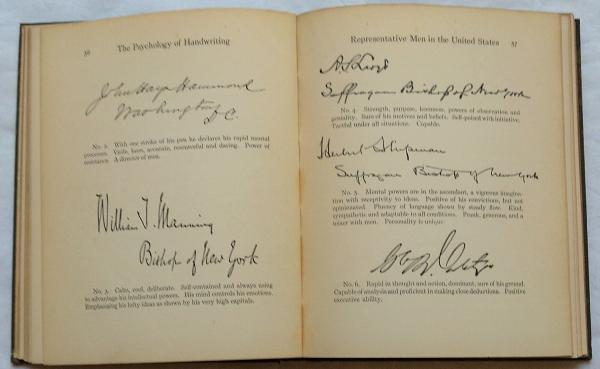 56 The Psychology of Handwriting
John Hays Hammond
Washington
D.C.
No. 2. With one stroke of his pen he declares his rapid mental
processes. Virile, keen, accurate, resourceful and daring. Power of
resistance. A director of men.
William T. Manning
Bishop of New York
No. 3. Calm, cool, deliberate. Self-contained and always using
to advantage his intellectual powers. His mind controls his emotions.
Emphasizing his lofty ideas as shown by his very high capitals.
Representative Men in the United States 57
A. S. Lloyd
Suffragan Bishop of New York
No. 4. Strength, purpose, keenness, powers of observation and
geniality. Sure of his motives and beliefs. Self-poised with initiative.
Tactful under all situations. Capable.
Herbert Shipman
Suffragan Bishop of New York
No. 5. Mental powers are in the ascendant, a vigorous imagina-
tion with receptivity to ideas. Positive of his convictions, but not
opinionated. Fluency of language shown by steady flow. Kind,
sympathetic and adaptable to all conditions. Frank, generous, and a
mixer with men. Personality is unique.
No. 6. Rapid in thought and action, dominant, sure of his ground.
Capable of analysis and proficient in making close deductions. Positive
executive ability.